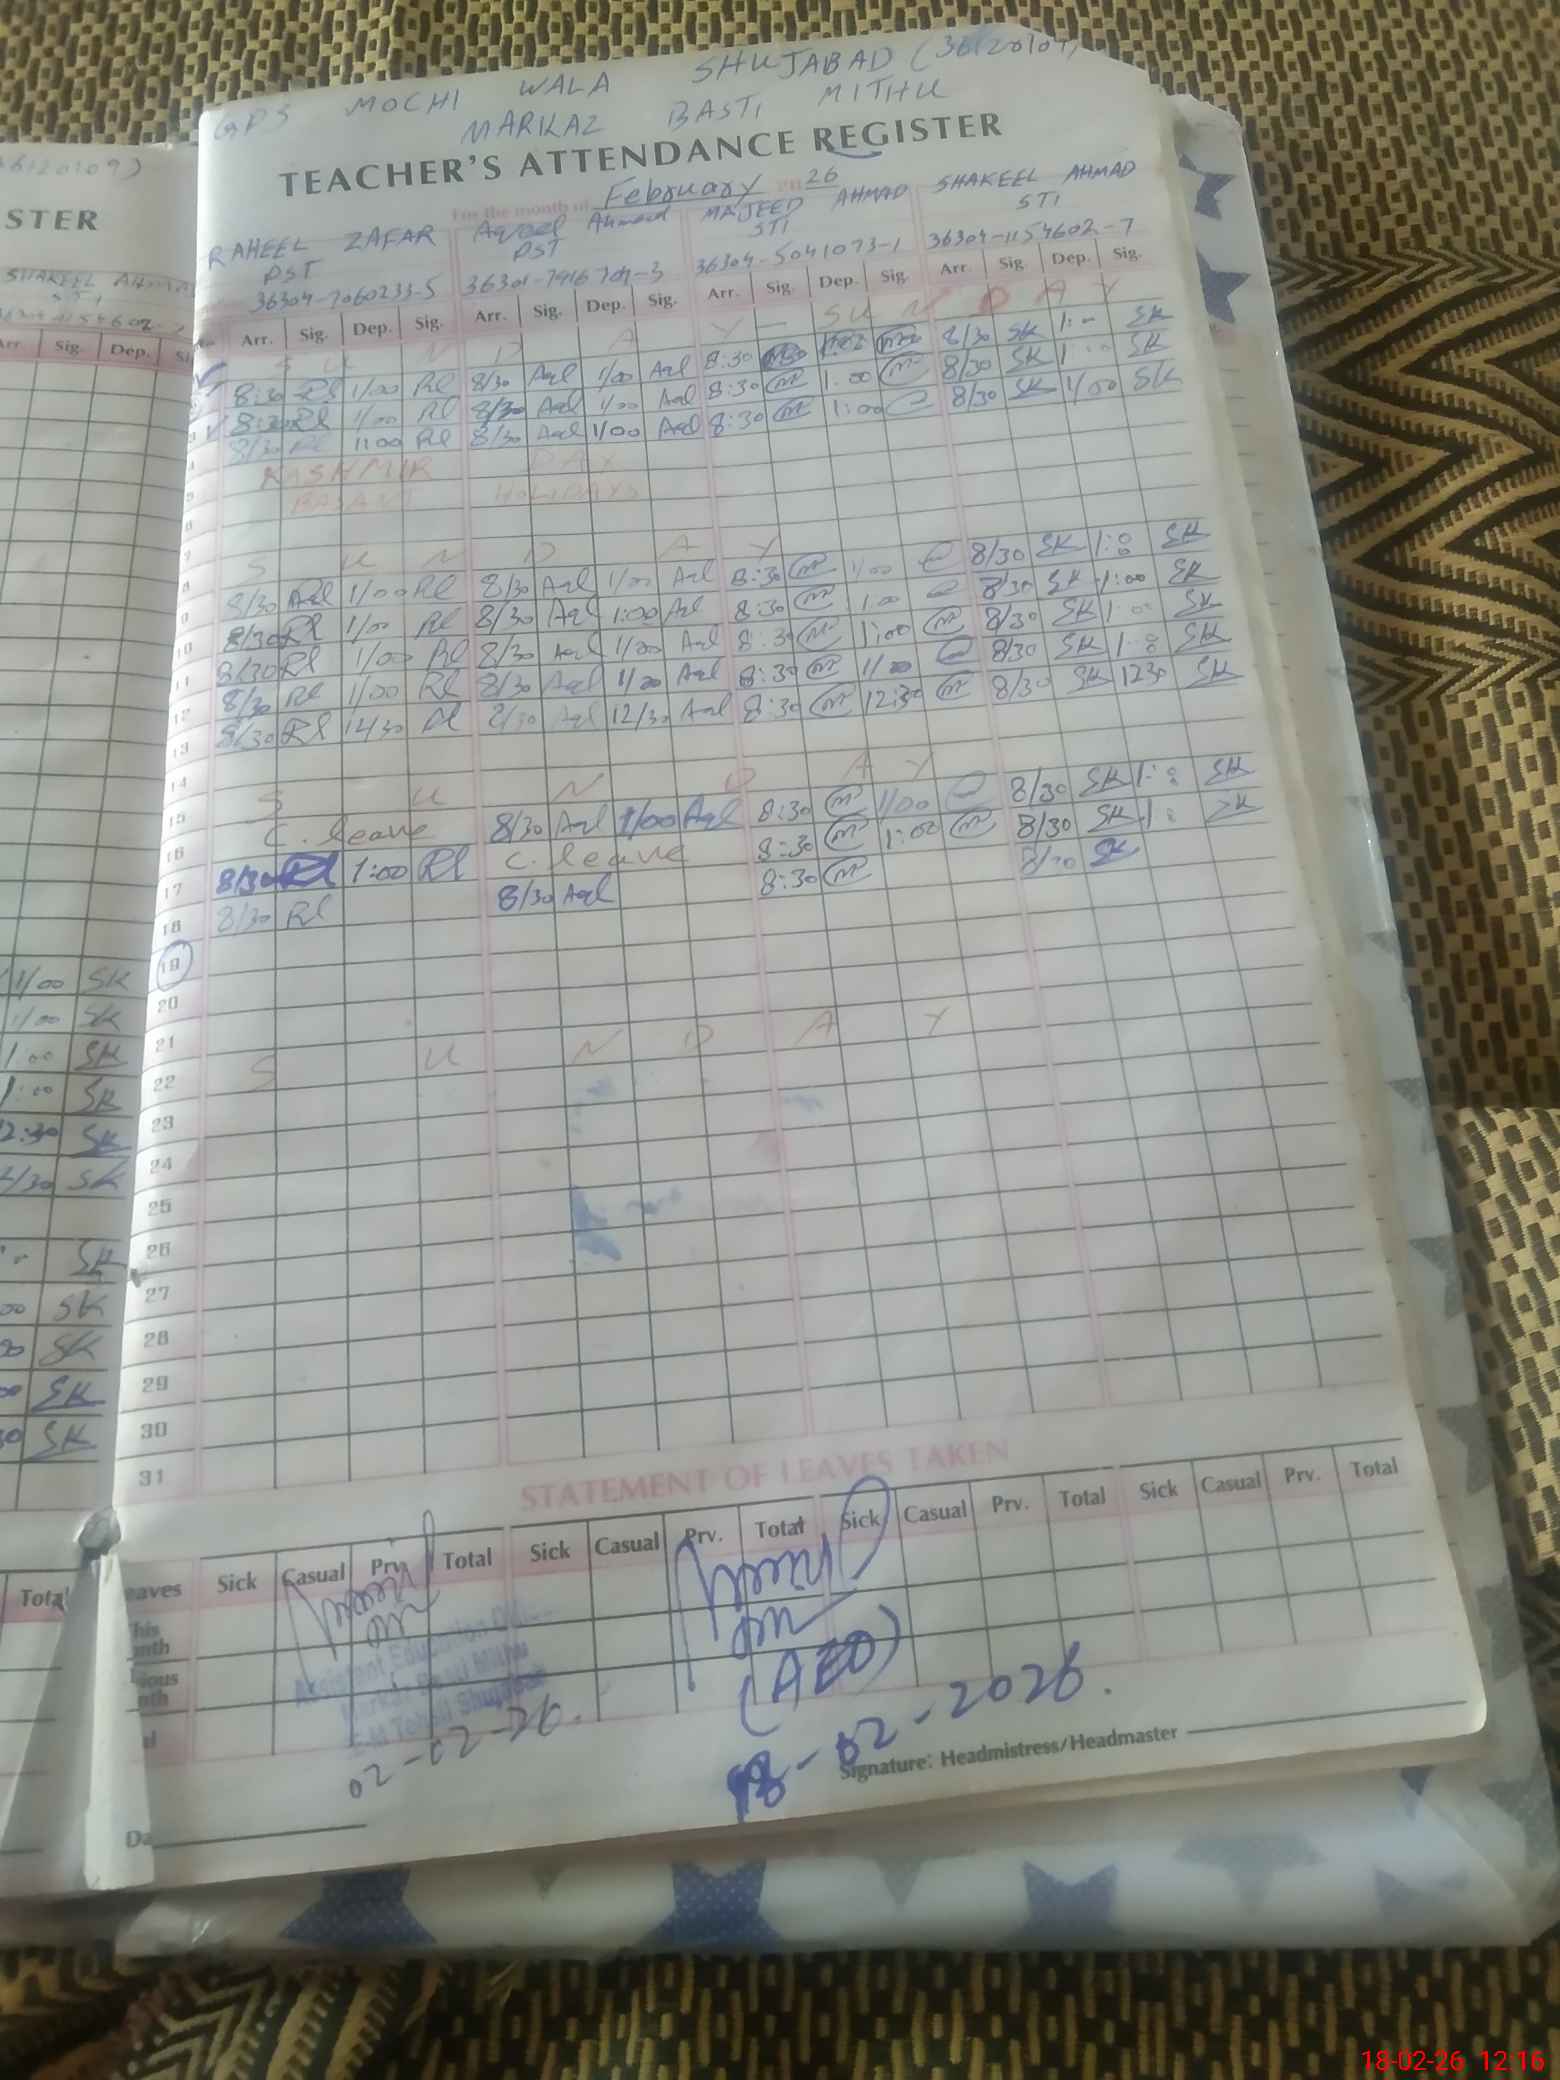 GPS MOCHI WALA SHUJABAD (36120109)
MARKAZ BASTI MITHU
TEACHER'S ATTENDANCE REGISTER
For the month of February 26
RAHEEL ZAFAR Aqeel Ahmad MAJEED AHMAD SHAKEEL AHMAD
PST PST STI STI
36304-7060233-5 36304-5041073-1 36304-1154602-7
Arr. Sig. Dep. Sig. Arr. Sig. Dep. Sig. Arr. Sig. Dep. Sig. Arr. Sig. Dep. Sig.
S U N D A Y - SUNDAY
8:30 Rl 1/00 Rl 8/30 Aql 1/00 Aql 8:30 8/30 SK 1: SK
8:30 Rl 1/00 Rl 8/30 Aql 1/00 Aql 8:30 1:00 8/30 SK 1 SK
8/30 Rl 1:00 Rl 8/30 Aql 1/00 Aql 8:30 1:00 8/30 SK 1/00 SK
KASHMIR DAY
BASANT HOLIDAYS
7
8 S U N D A Y
9 8/30 Rl 1/00 Rl 8/30 Aql 1/00 Aql 8:30 1/00 8/30 SK 1:0 SK
10 8/30 Rl 1/00 Rl 8/30 Aql 1:00 Aql 8:30 1:00 8/30 SK 1:00 SK
11 8/30 Rl 1/00 Rl 8/30 Aql 1/00 Aql 8:30 1:00 8/30 SK 1:00 SK
12 8/30 Rl 1/00 Rl 8/30 Aql 1/00 Aql 8:30 1/00 8/30 SK 1:0 SK
13 8/30 Rl Rl 8/30 Aql 12/30 Aql 8:30 12:30 8/30 SK 1230 SK
14
15 S U N D A Y
16 C. leave 8/30 Aql 1/00 Aql 8:30 1/00 8/30 SK 1:0 SK
17 8/30 Rl 1:00 Rl C. leave 8:30 1:00 8/30 SK 1: SK
18 8/30 Rl 8/30 Aql 8:30 8/30 SK
19
20
21
22 S U N D A Y
23
24
25
26
27
28
29
30
31
STATEMENT OF LEAVES TAKEN
eaves Sick Casual Prv. Total Sick Casual Prv. Total Sick Casual Prv. Total Sick Casual Prv. Total
his
nth
ious
nth
al
Assistant Education
Markaz Basti Mithu
Tehsil Shujabad
02-02-26.
(AEO)
18-02-2026.
Signature: Headmistress/Headmaster
Da
STER
SHAKEEL AHMA
STI
Arr. Sig. Dep.
1/00 SK
1/00 SK
1:00 SK
1:00 SK
2:30 SK
2/30 SK
SK
00 SK
00 SK
00 SK
30 SK
Total
18-02-26 12:16